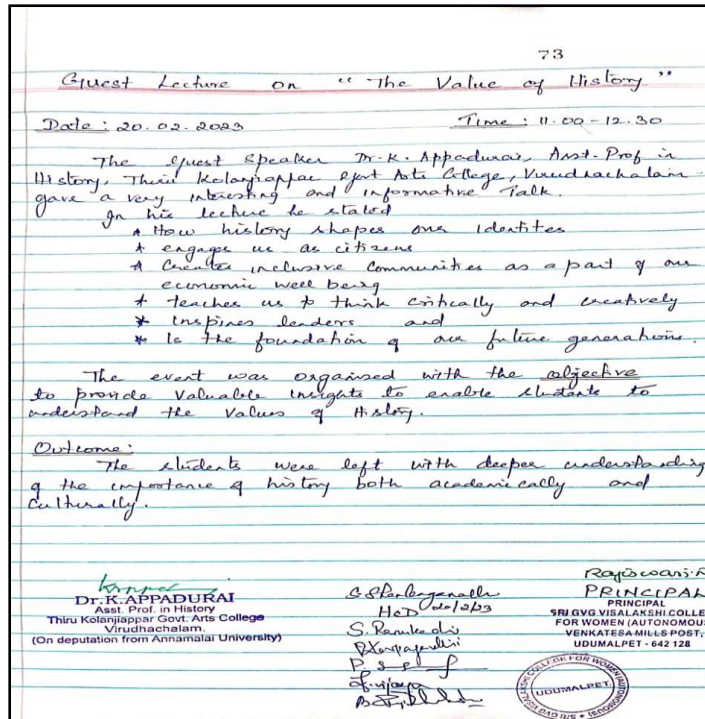 73
Guest Lecture on "The Value of History"
Date : 20.02.2023 Time : 11.00-12.30
The guest Speaker Dr. K. Appadurai, Asst. Prof in
History, Thiru Kolanjiappar Govt Arts College, Virudhachalam
gave a very interesting and informative Talk.
In his lecture he stated
* How history shapes our identites
* engages us as citizens
* Creates inclusive communities as a part of our
economic well being
* teaches us to think critically and creatively
* inspires leaders and
* Is the foundation of our future generations.
The event was organised with the objective
to provide valuable insights to enable students to
understand the values of History.
Outcome:
The students were left with deeper understanding
of the importance of history both academically and
Culturally.
Dr. K. APPADURAI
Asst. Prof. in History
Thiru Kolanjiappar Govt. Arts College
Virudhachalam.
(On deputation from Annamalai University)
HoD 20/2/23
S. Renukadevi
Rajeswari.R
PRINCIPAL
PRINCIPAL
SRI GVG VISALAKSHI COLLE
FOR WOMEN (AUTONOMOU
VENKATESA MILLS POST,
UDUMALPET - 642 128
UDUMALPET